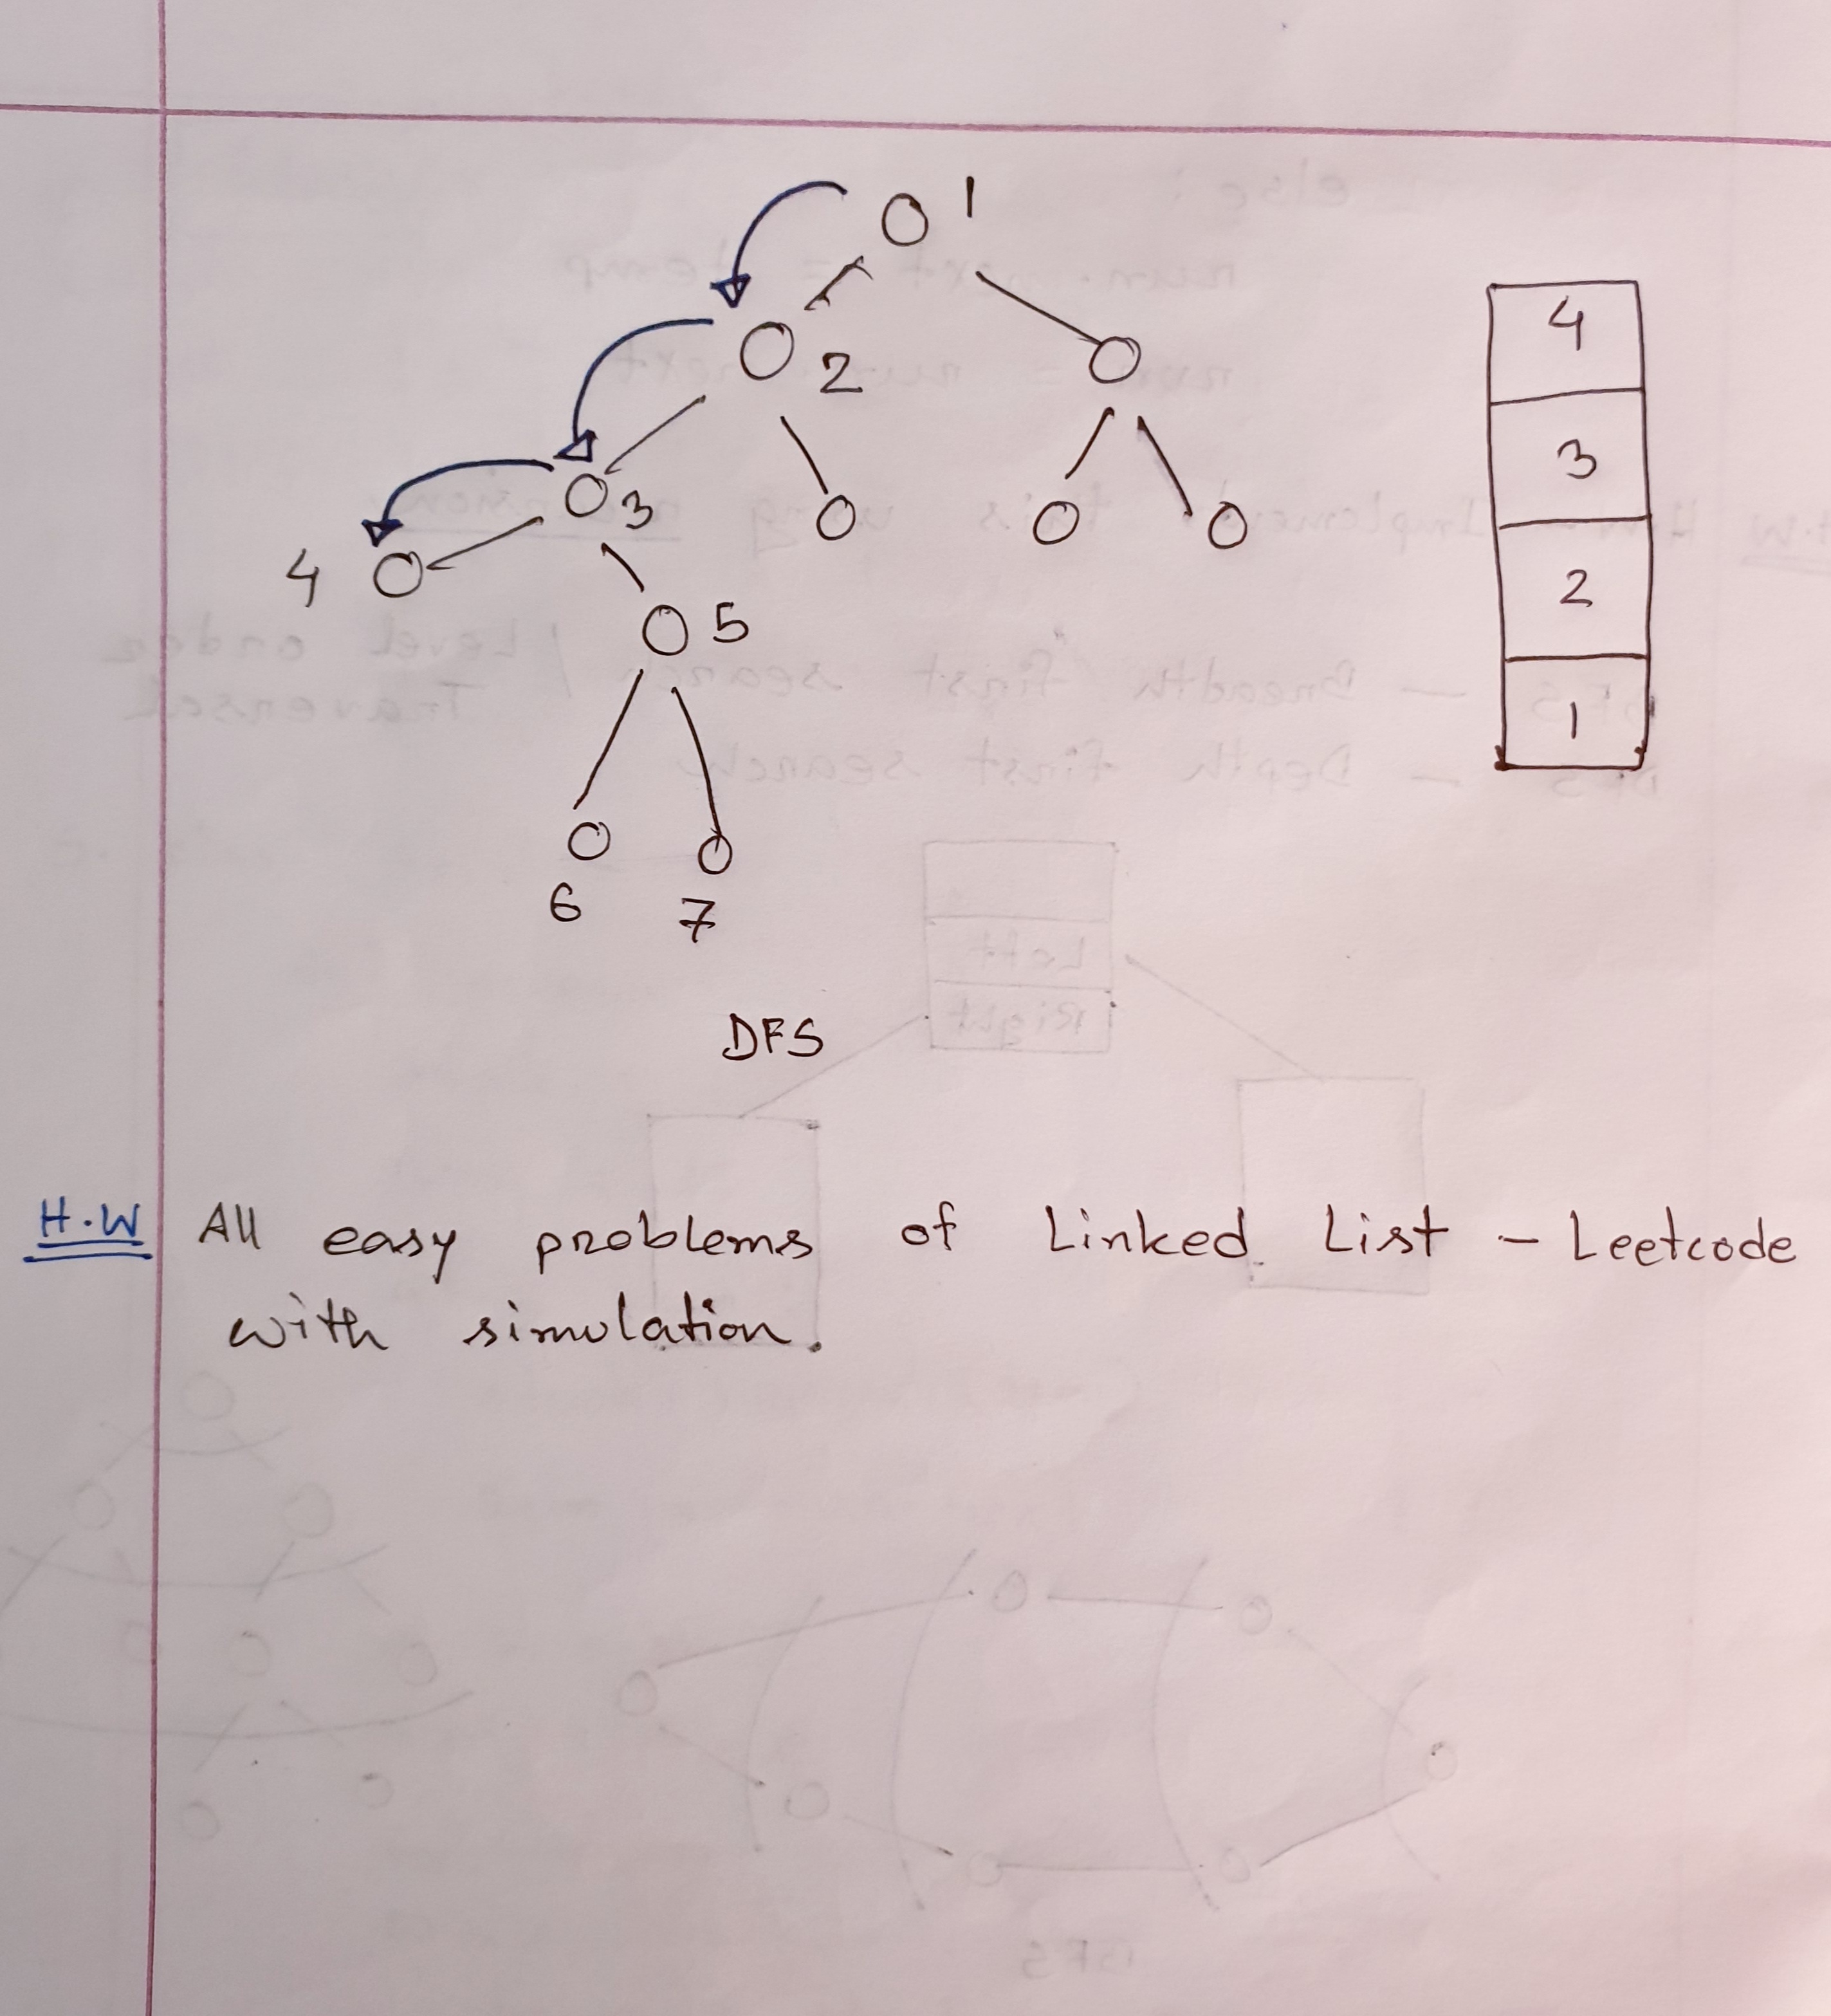 1
2
3
4
5
6
7
4
3
2
1
DFS
H.W All easy problems of Linked List - Leetcode
with simulation.